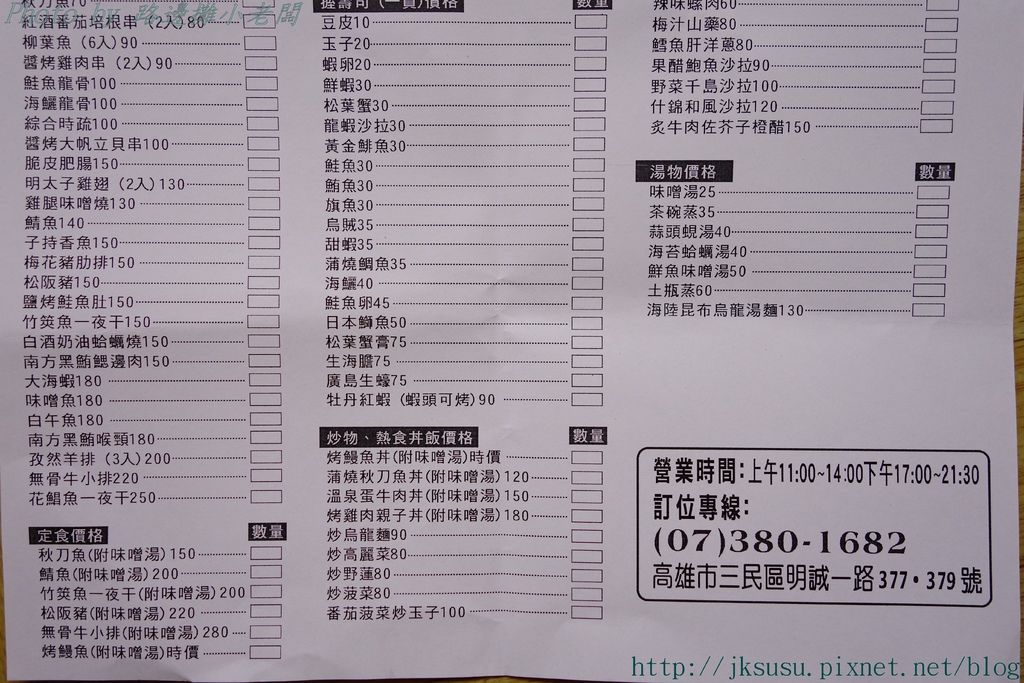 Photo by 路邊攤小老闆
秋刀魚70
紅酒番茄培根串 (2入)80
柳葉魚 (6入)90
醬烤雞肉串 (2入)90
鮭魚龍骨100
海鱺龍骨100
綜合時疏100
醬烤大帆立貝串100
脆皮肥腸150
明太子雞翅 (2入)130
雞腿味噌燒130
鯖魚140
子持香魚150
梅花豬肋排150
松阪豬150
鹽烤鮭魚肚150
竹筴魚一夜干150
白酒奶油蛤蠣燒150
南方黑鮪鰓邊肉150
大海蝦180
味噌魚180
白午魚180
南方黑鮪喉頸180
孜然羊排 (3入)200
無骨牛小排220
花鯧魚一夜干250
定食價格 數量
秋刀魚(附味噌湯)150
鯖魚(附味噌湯)200
竹筴魚一夜干(附味噌湯)200
松阪豬(附味噌湯)220
無骨牛小排(附味噌湯)280
烤鰻魚(附味噌湯)時價
握壽司 (一貫)價格 數量
豆皮10
玉子20
蝦卵20
鮮蝦30
松葉蟹30
龍蝦沙拉30
黃金鯡魚30
鮭魚30
鮪魚30
旗魚30
烏賊35
甜蝦35
蒲燒鯛魚35
海鱺40
鮭魚卵45
日本鰤魚50
松葉蟹膏75
生海膽75
廣島生蠔75
牡丹紅蝦 (蝦頭可烤)90
炒物、熱食丼飯價格 數量
烤鰻魚丼(附味噌湯)時價
蒲燒秋刀魚丼(附味噌湯)120
溫泉蛋牛肉丼(附味噌湯)150
烤雞肉親子丼(附味噌湯)180
炒烏龍麵90
炒高麗菜80
炒野蓮80
炒菠菜80
番茄菠菜炒玉子100
辣味螺肉60
梅汁山藥80
鱈魚肝洋蔥80
果醋鮑魚沙拉90
野菜千島沙拉100
什錦和風沙拉120
炙牛肉佐芥子橙醋150
湯物價格 數量
味噌湯25
茶碗蒸35
蒜頭蜆湯40
海苔蛤蠣湯40
鮮魚味噌湯50
土瓶蒸60
海陸昆布烏龍湯麵130
營業時間:上午11:00~14:00下午17:00~21:30
訂位專線:
(07)380-1682
高雄市三民區明誠一路377·379號
http://jksusu.pixnet.net/blog